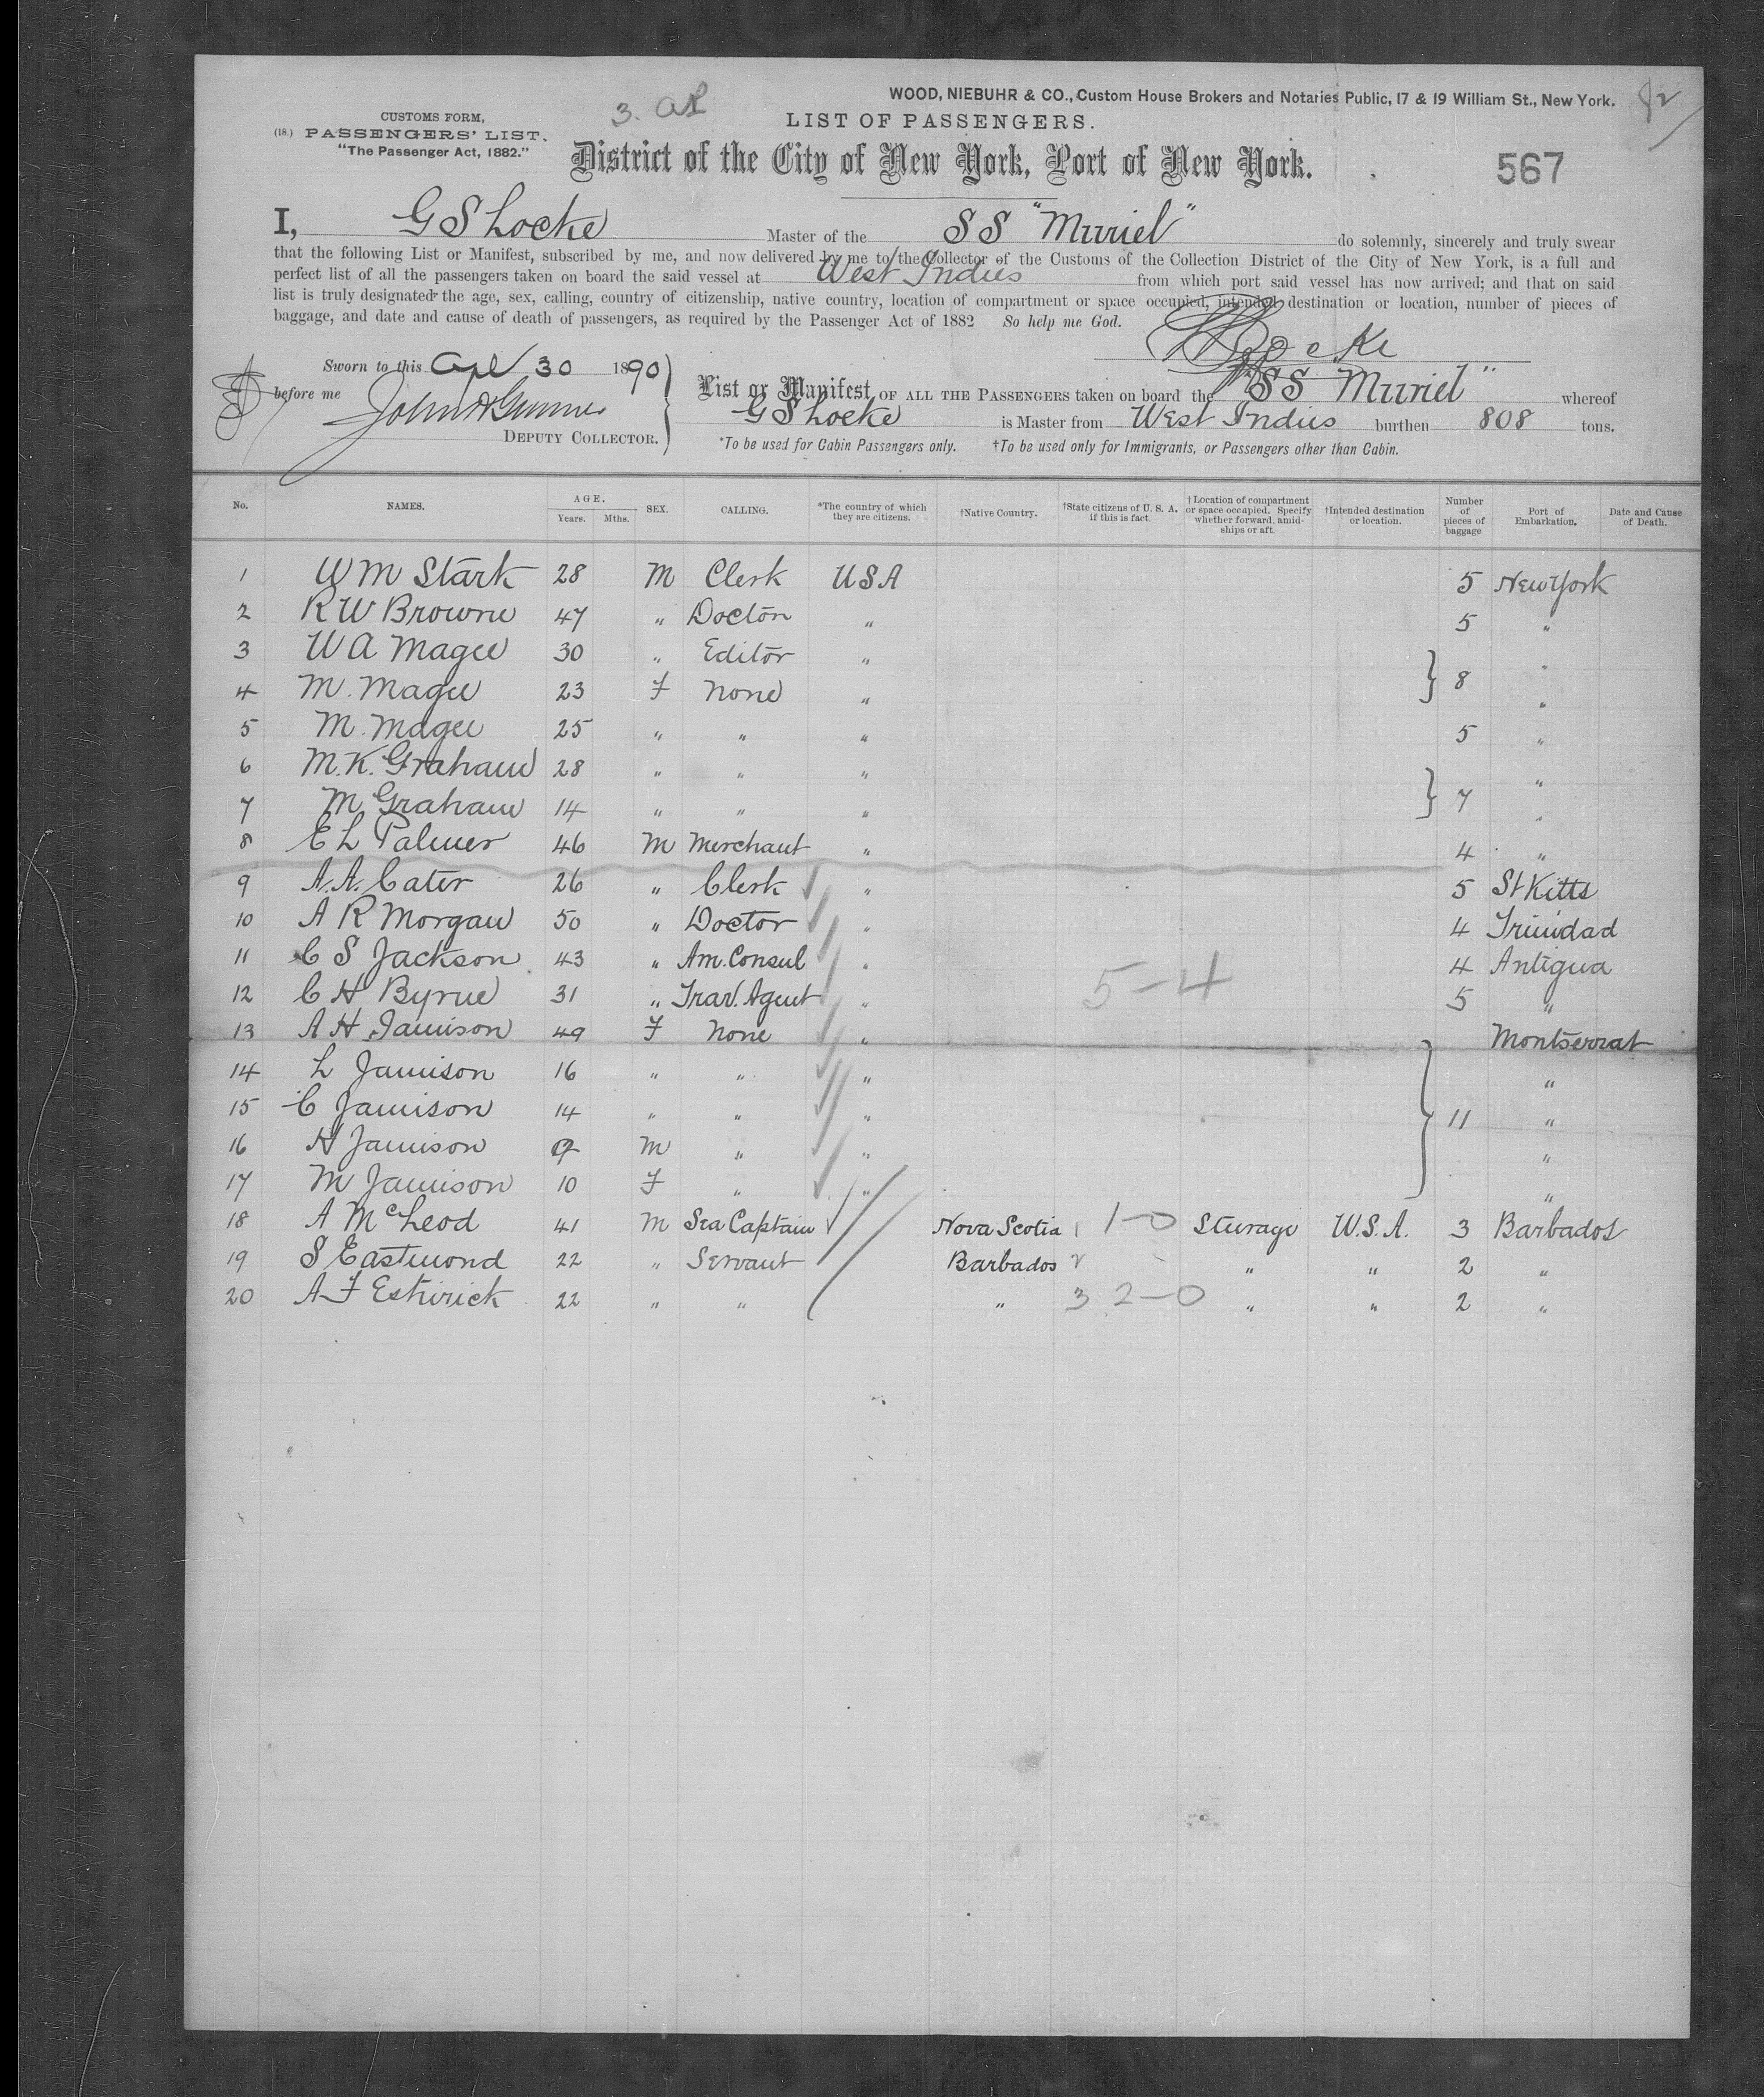 WOOD, NIEBUHR & CO., Custom House Brokers and Notaries Public, 17 & 19 William St., New York.
3.
CUSTOMS FORM,
(18.) PASSENGERS' LIST.
"The Passenger Act, 1882."
LIST OF PASSENGERS.
District of the City of New York, Port of New York.
567
I, G S Locke Master of the S S "Muriel" do solemnly, sincerely and truly swear
that the following List or Manifest, subscribed by me, and now delivered by me to the Collector of the Customs of the Collection District of the City of New York, is a full and
perfect list of all the passengers taken on board the said vessel at West Indies from which port said vessel has now arrived; and that on said
list is truly designated the age, sex, calling, country of citizenship, native country, location of compartment or space occupied, intended destination or location, number of pieces of
baggage, and date and cause of death of passengers, as required by the Passenger Act of 1882 So help me God.
G S Locke
Sworn to this Apl 30 1890
before me John A
DEPUTY COLLECTOR.
List or Manifest OF ALL THE PASSENGERS taken on board the "SS Muriel" whereof
G S Locke is Master from West Indies burthen 808 tons.
*To be used for Cabin Passengers only. †To be used only for Immigrants, or Passengers other than Cabin.
No. NAMES. AGE. Years. Mths. SEX. CALLING. *The country of which they are citizens. †Native Country. †State citizens of U. S. A. if this is fact. †Location of compartment or space occupied. Specify whether forward, amid-ships or aft. †Intended destination or location. Number of pieces of baggage Port of Embarkation. Date and Cause of Death.
1 W M Stark 28 M Clerk U S A 5 New York
2 R W Browne 47 " Doctor " 5 "
3 W A Magee 30 " Editor " "
4 M. Magee 23 F None " 8 "
5 M. Magee 25 " " " 5 "
6 M. K. Graham 28 " " " "
7 M Graham 14 " " " 7 "
8 E L Palmer 46 M Merchant " 4 "
9 A. A. Cater 26 " Clerk " 5 St Kitts
10 A R Morgan 50 " Doctor " 4 Trinidad
11 C S Jackson 43 " Am. Consul " 4 Antigua
12 C H Byrne 31 " Trav. Agent " 5 "
5-4
13 A H Jamison 49 F None " Montserrat
14 L Jamison 16 " " " "
15 C Jamison 14 " " " 11 "
16 H Jamison 9 M " " "
17 M Jamison 10 F " " "
18 A McLeod 41 M Sea Captain Nova Scotia 1 1-0 Sturage W.S.A. 3 Barbados
19 S Eastmond 22 " Servant Barbados 2 " " 2 "
20 A F Estwick 22 " " " 3 2-0 " " 2 "